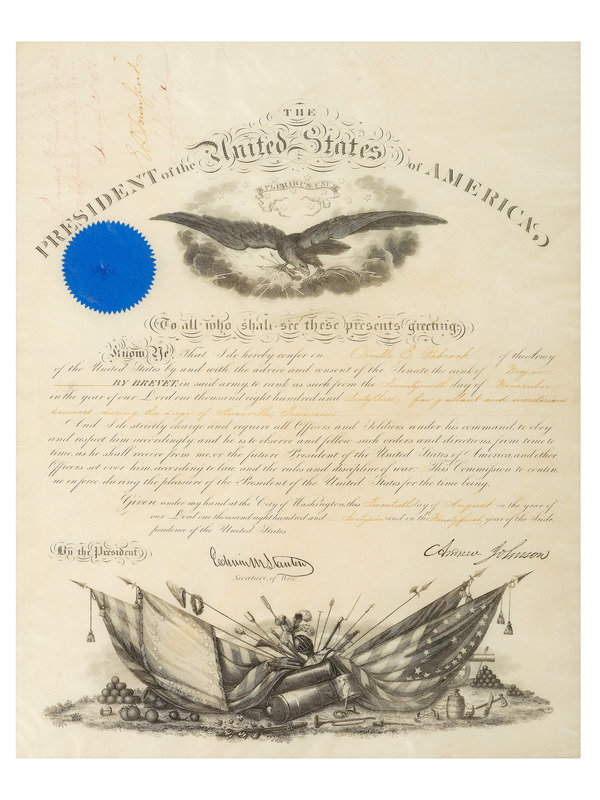 THE
PRESIDENT of the United States of AMERICA,
E PLURIBUS UNUM
To all who shall see these presents greeting:
Know Ye, That I do hereby confer on Orville E. Babcock of the Army
of the United States by and with the advice and consent of the Senate the rank of Major
BY BREVET, in said army to rank as such from the Twentyninth day of November
in the year of our Lord one thousand eight hundred and Sixtythree, for gallant and meritorious
services during the siege of Knoxville, Tennessee
And I do strictly charge and require all Officers and Soldiers under his command, to obey
and respect him accordingly, and he is to observe and follow such orders and directions, from time to
time, as he shall receive from me or the future President of the United States of America, and other
Officers set over him, according to law, and the rules and discipline of war. This Commission to contin-
ue in force during the pleasure of the President of the United States for the time being.
Given under my hand at the City of Washington, this day of August in the year of
our Lord one thousand eight hundred and Sixtysix and in the Ninetyfirst year of the Inde-
pendence of the United States.
By the President,
Edwin M Stanton
Secretary of War
Andrew Johnson
E D Townsend